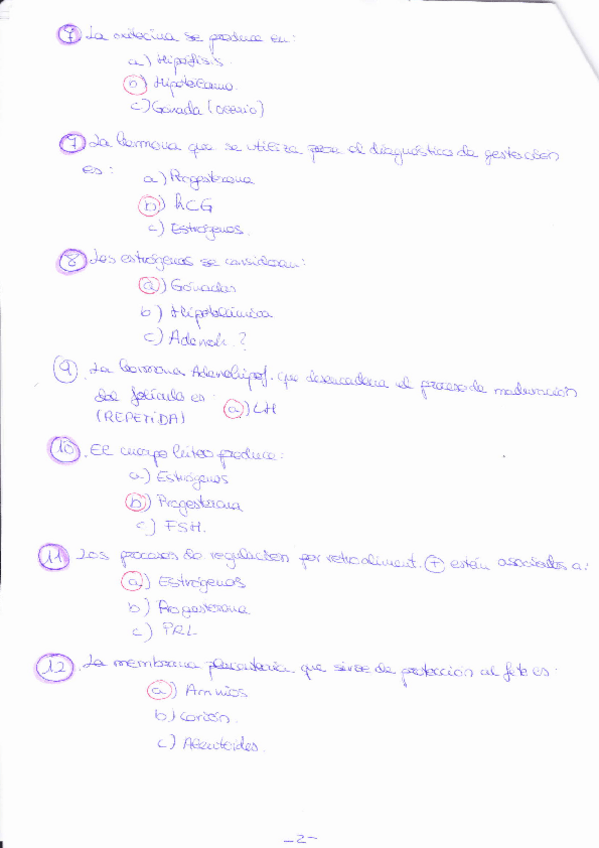 7 La oxitocina se produce en:
a) Hipófisis.
b) Hipotálamo.
c) Gónada (ovario)
7 La hormona que se utiliza para el diagnóstico de gestación
es:
a) Progesterona
b) hCG
c) Estrógenos.
8 Los estrógenos se consideran:
a) Gónadas
b) Hipotalámica
c) Adenoh. ?
9. La hormona Adenohipof. que desencadena el proceso de maduración
del folículo es:
(REPETIDA) a) LH
10. El cuerpo lúteo produce:
a) Estrógenos
b) Progesterona
c) FSH.
11 Los procesos de regulación por retroaliment. + están asociados a:
a) Estrógenos
b) Progesterona
c) PRL
12. La membrana placentaria que sirve de protección al feto es:
a) Amnios
b) Corión.
c) Alantoides.
-2-